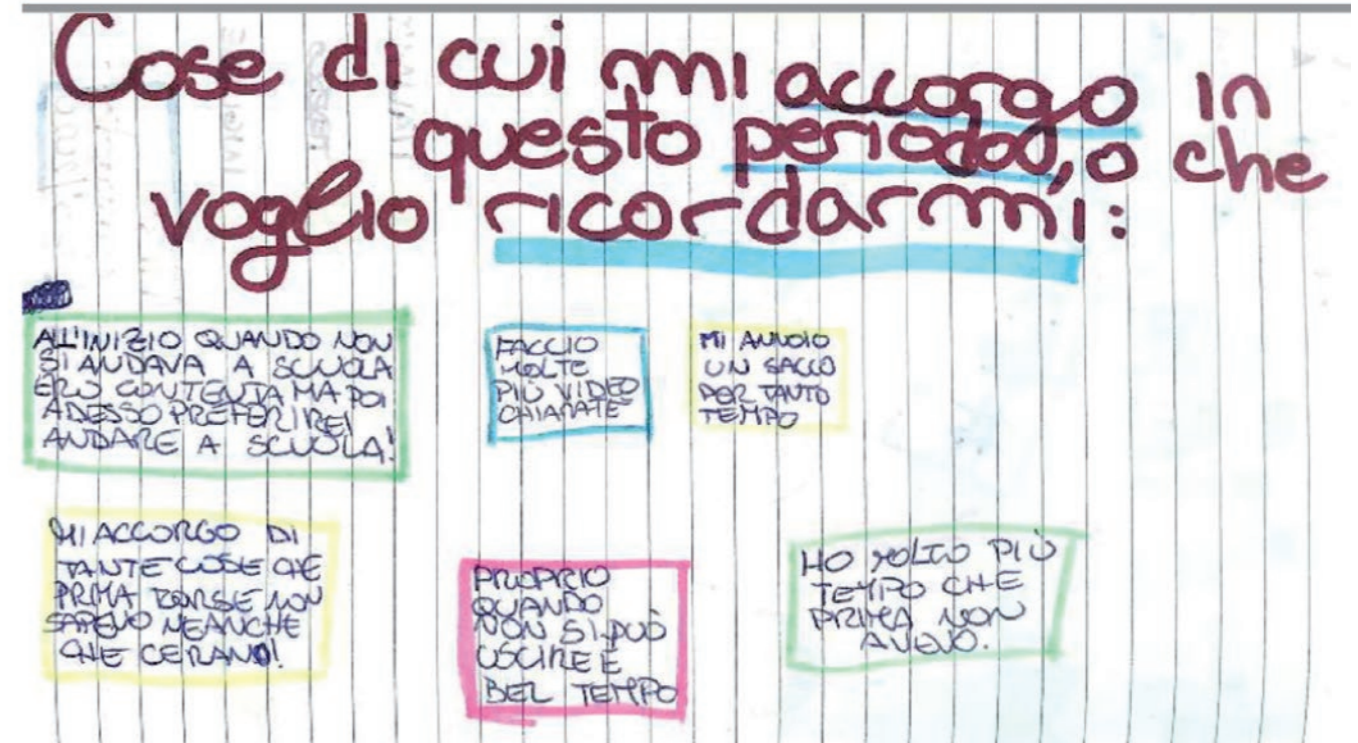 Cose di cui mi accorgo in
questo periodo, o che
voglio ricordarmi:
ALL'INIZIO QUANDO NON
SI ANDAVA A SCUOLA
ERO CONTENTA MA POI
ADESSO PREFERIREI
ANDARE A SCUOLA!
FACCIO
MOLTE
PIÙ VIDEO
CHIAMATE
MI ANNOIO
UN SACCO
PER TANTO
TEMPO
MI ACCORGO DI
TANTE COSE CHE
PRIMA FORSE NON
SAPEVO NEANCHE
CHE CERANO!
PROPRIO
QUANDO
NON SI PUÒ
USCIRE È
BEL TEMPO
HO MOLTO PIÙ
TEMPO CHE
PRIMA NON
AVEVO.